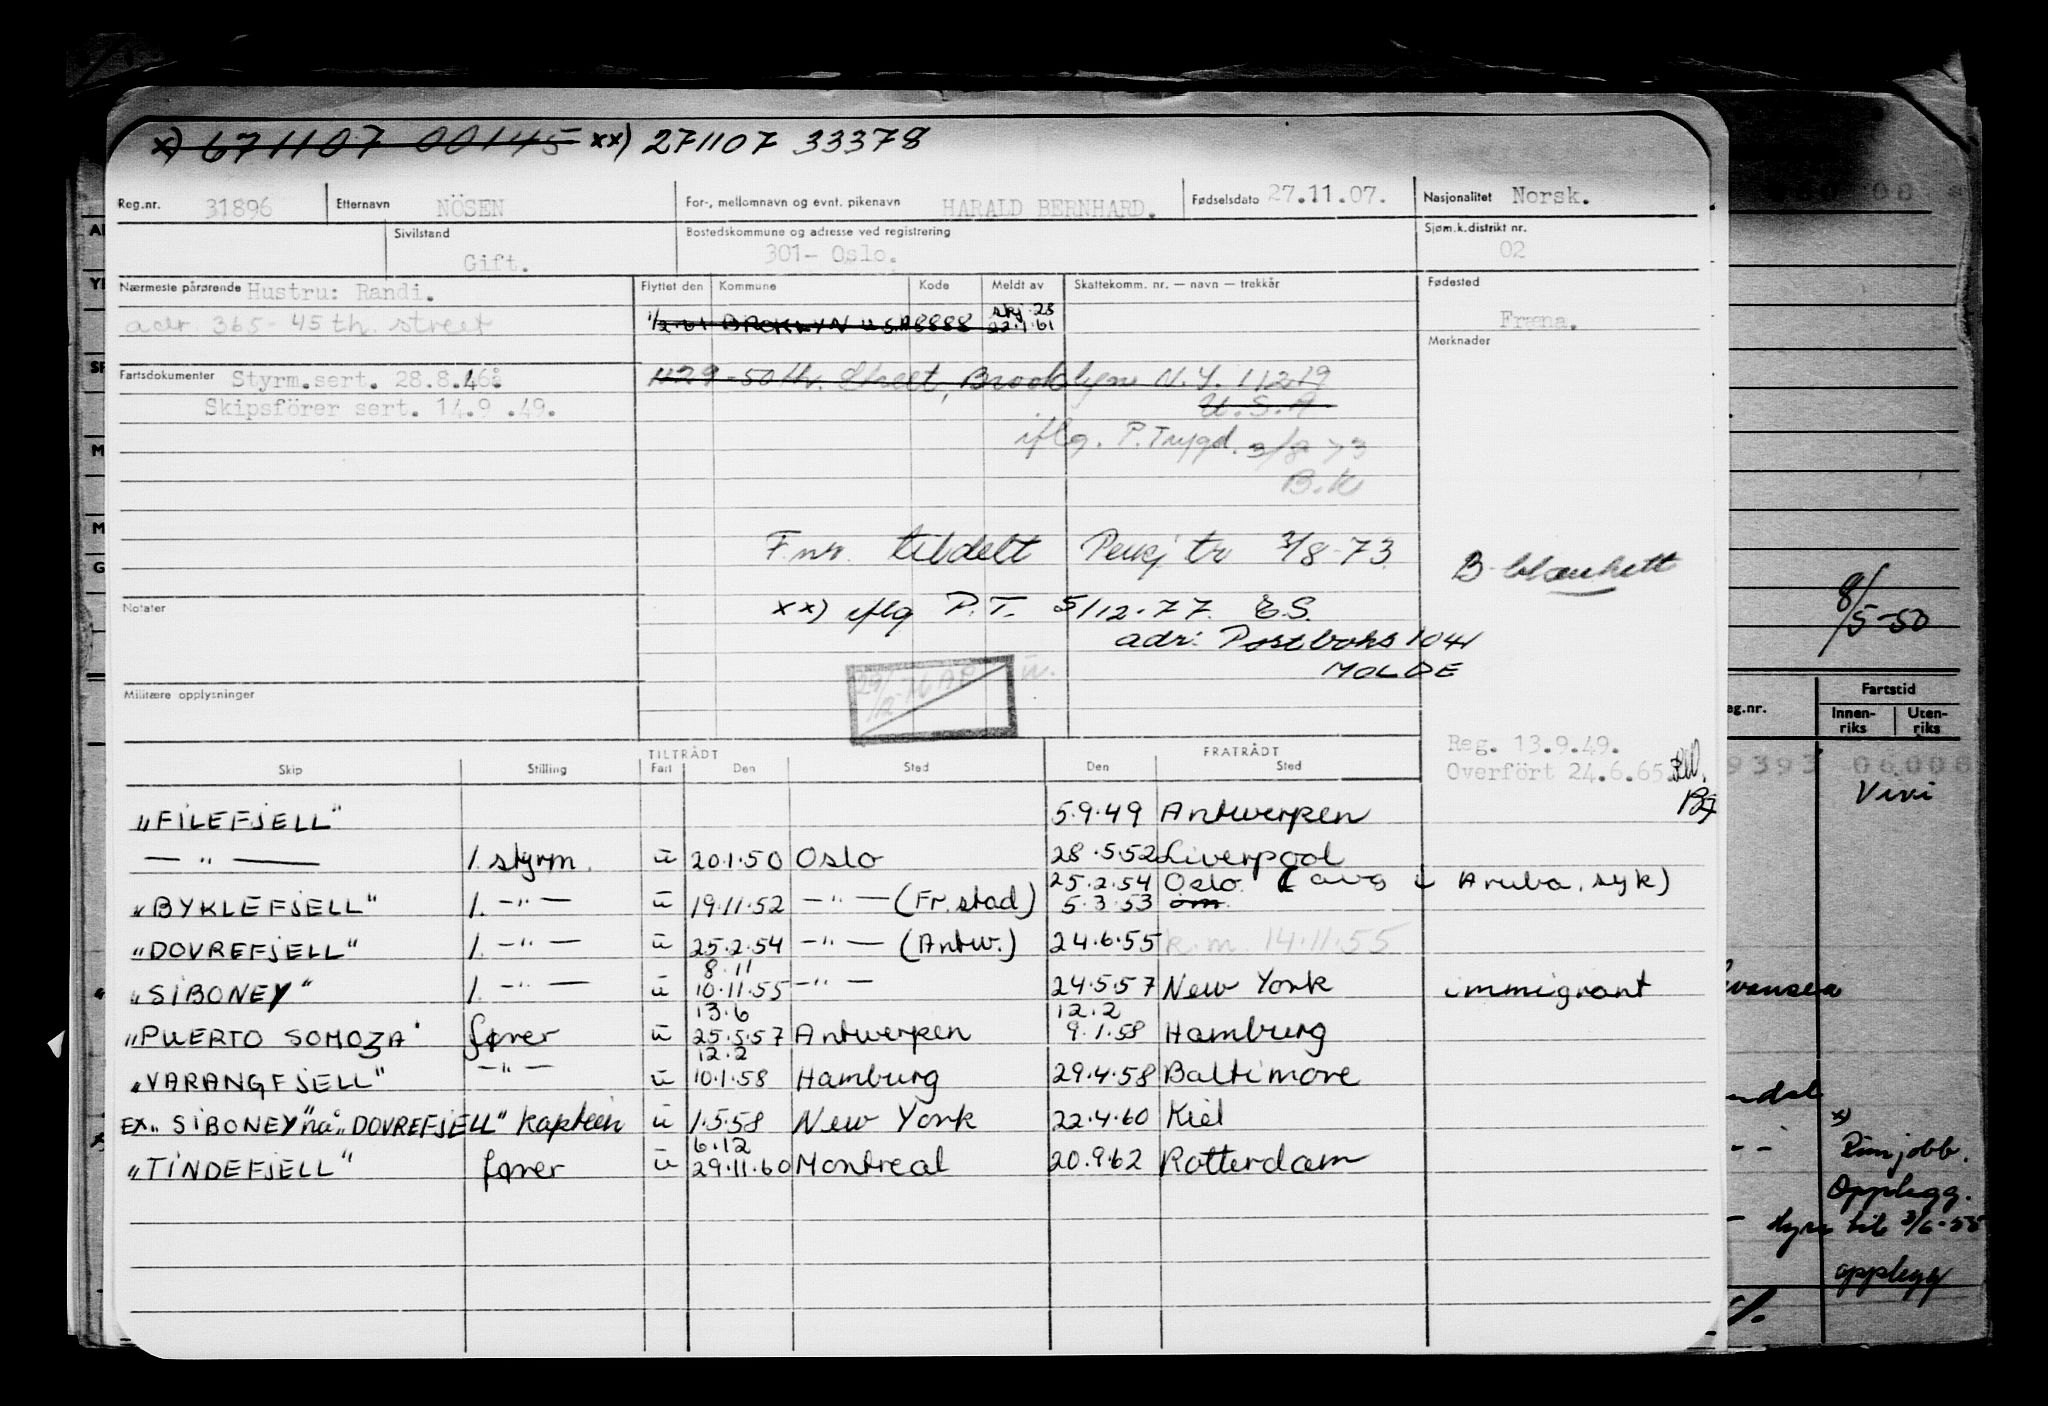 x) 671107 00145 xx) 271107 33378
Reg.nr. 31896 Etternavn NÖSEN For-, mellomnavn og evnt. pikenavn HARALD BERNHARD. Fødselsdato 27.11.07. Nasjonalitet Norsk.
Sivilstand Gift. Bostedskommune og adresse ved registrering 301- Oslo. Sjøm.k.distrikt nr. 02
Nærmeste pårørende Hustru: Randi. Flyttet den Kommune Kode Meldt av Skattekomm. nr. — navn — trekkår Fødested
adr. 365- 45 th. street 1/2.61 BROKLYN U.S.A 8888 skj.28 22.1.61 Fræna.
Merknader
Fartsdokumenter Styrm.sert. 28.8.46. 1129-50th. Street, Brooklyn N.Y. 11219
Skipsförer sert. 14.9 .49. U.S.A
iflg. P.Trygd. 3/8 73
B.K
F.nr. tildelt 3/8-73. B-blankett
Notater xx) iflg P.T. 5/12.77. E.S.
adr: Postboks 1041
MOLDE
Militære opplysninger
ü.
Reg. 13.9.49.
Overfört 24.6.65.
TILTRÅDT FRATRÅDT
Skip Stilling Fart Den Sted Den Sted
"FILEFJELL" 5.9.49 Antwerpen
— " — 1. styrm. ü 20.1.50 Oslo 28.5.52 Liverpool
25.2.54 Oslo (avg ↓ Aruba, syk)
"BYKLEFJELL" 1. —"— ü 19.11.52 —"— (Fr.stad) 5.3.53 om.
"DOVREFJELL" 1. —"— ü 25.2.54 —"— (Antw.) 24.6.55 k.m. 14.11.55
8.11
"SIBONEY" 1. —"— ü 10.11.55 —"— 24.5.57 New York immigrant
13.6 12.2
"PUERTO SOMOZA" fører ü 25.5.57 Antwerpen 9.1.58 Hamburg
12.2
"VARANGFJELL" —"— ü 10.1.58 Hamburg 29.4.58 Baltimore
EX. "SIBONEY" nå "DOVREFJELL" kaptein ü 1.5.58 New York 22.4.60 Kiel
6.12
"TINDEFJELL" fører ü 29.11.60 Montreal 20.9.62 Rotterdam
8/5-50
Fartstid
eg.nr. Innen-riks Uten-riks
9393 06006
Vivi
x)
Rimjobb.
Opplegg.
Hyre til 3/6-55
opplegg